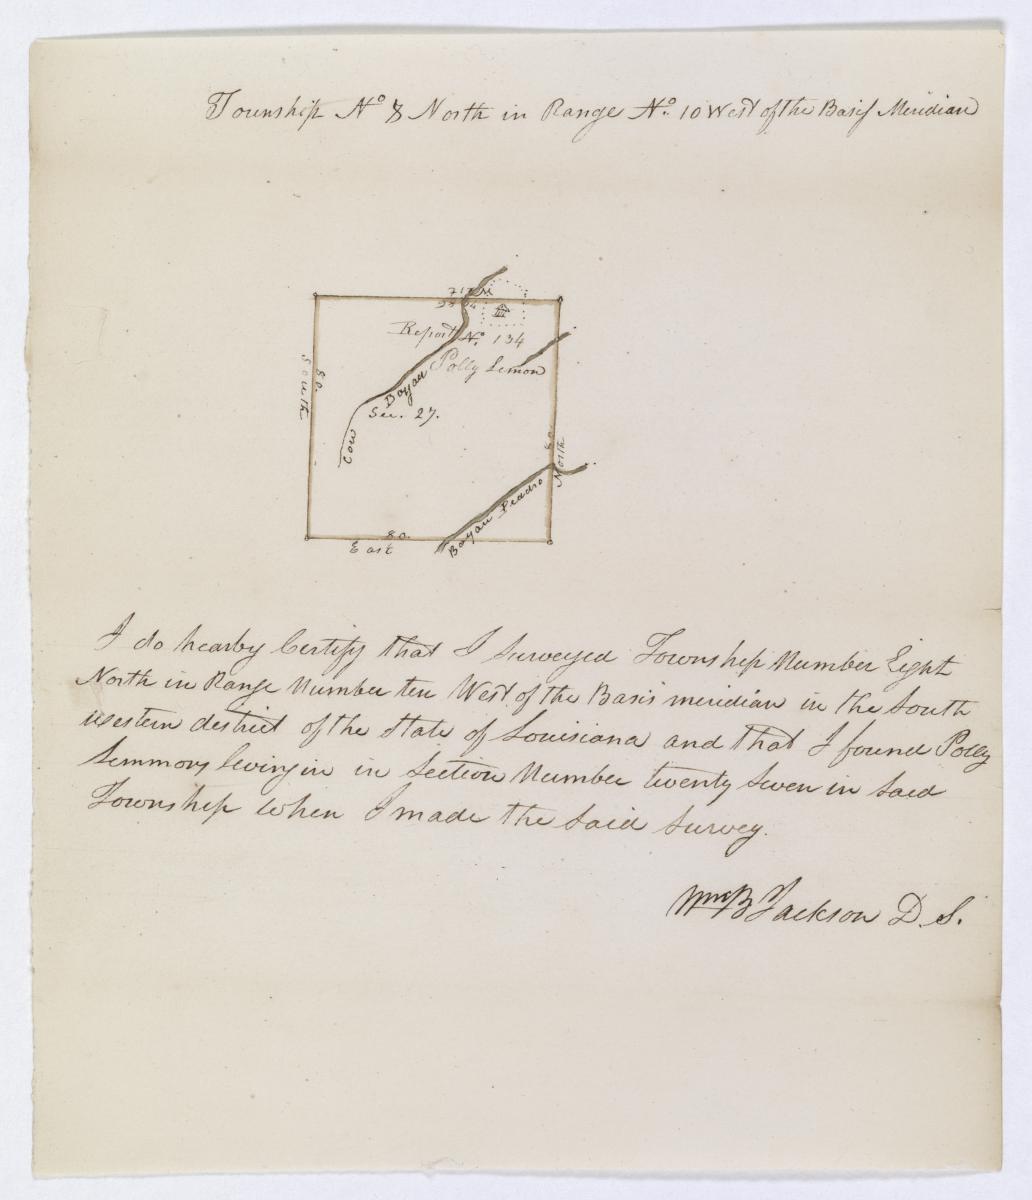 Township No 8 North in Range No. 10 West of the Basis Meridian
Report No. 134
Polly Lemon
Bayou
Sec. 27.
Cow
80.
South
80.
North
Bayau Peadro
80.
East
I do hearby Certify that I surveyed Township Number Eight
North in Range Number ten West of the Basis meridian in the South
western district of the state of Louisiana and that I found Polly
Lemmons living in in Section Number twenty Seven in said
Township when I made the said survey.
Wm B Jackson D. S.